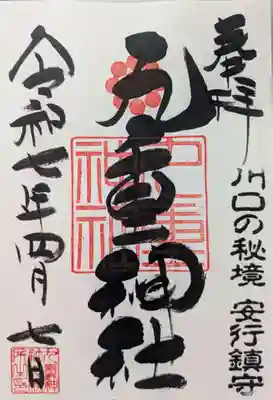 奉拝
川口の秘境 安行鎮守
九重神社
令和七年四月七日
九重神社